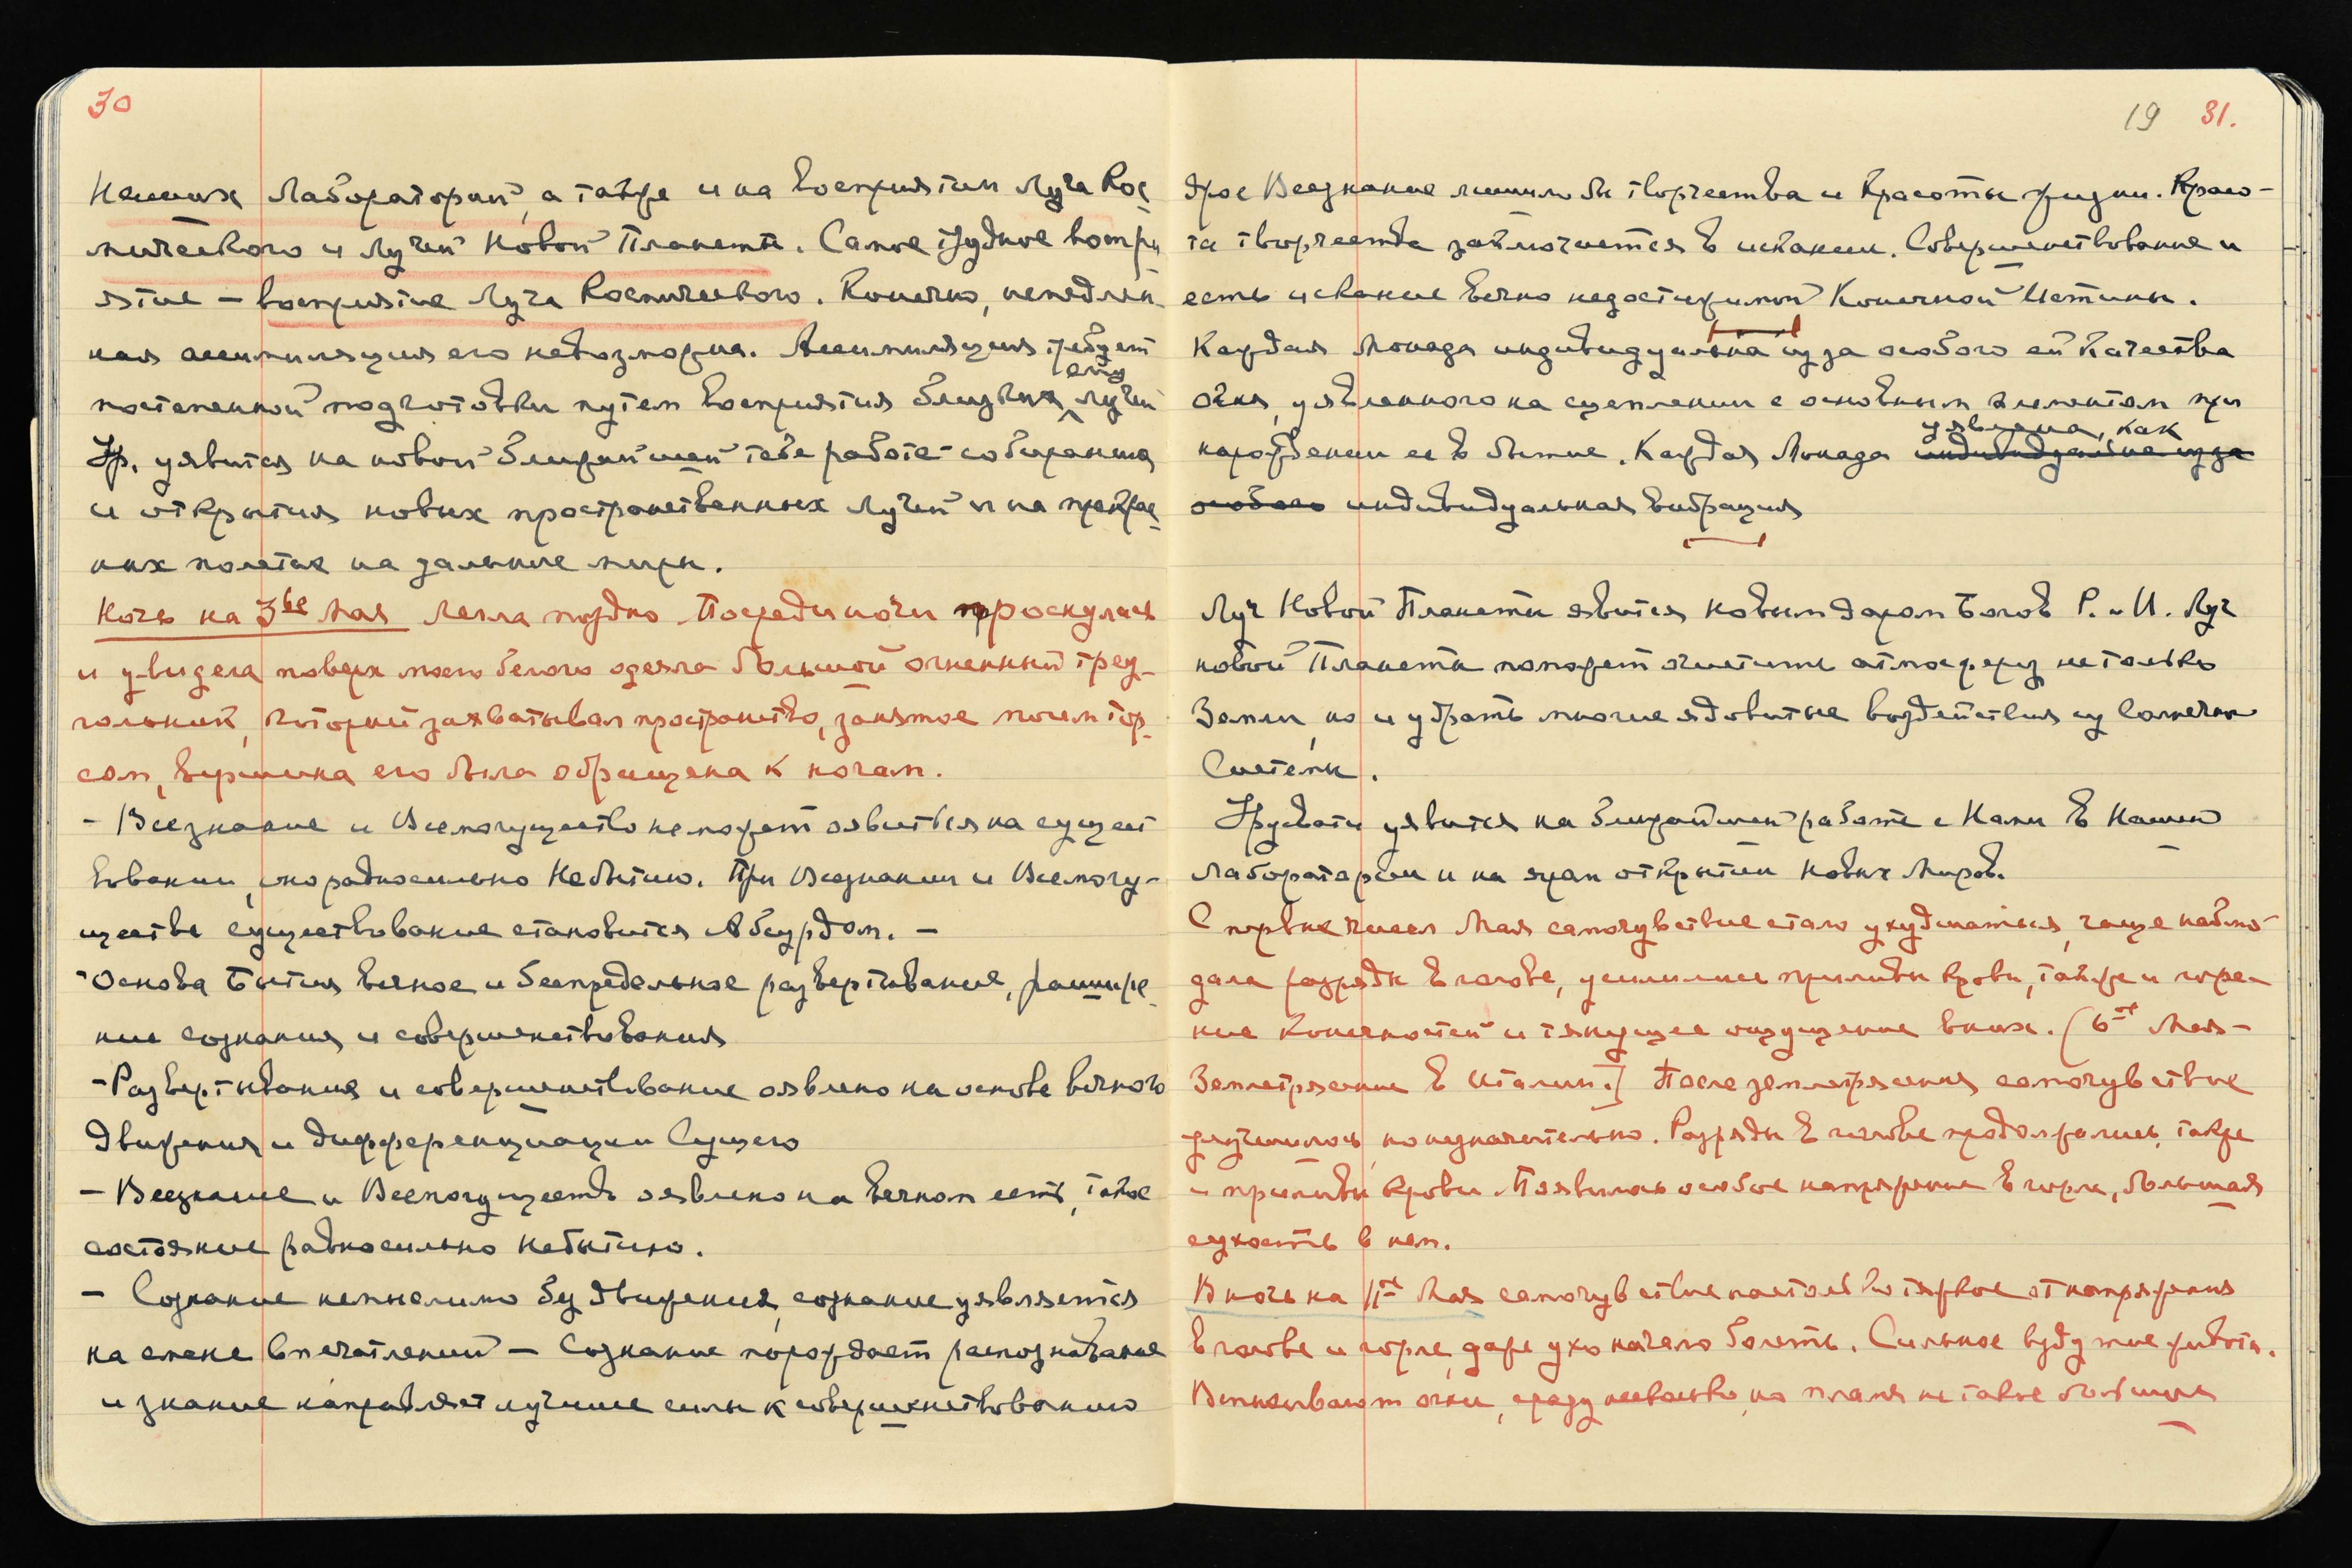 30
Наших Лабораторий, а также и на восприятии Луча Кос
мического и Лучей Новой Планеты. Самое трудное воспри
ятие – восприятие Луча Космического. Конечно, немедлен
ная ассимиляция его невозможна. Ассимиляция требует
ему
постепенной подготовки путем восприятия близких лучей
Ур. уявится на новой ближайшей тебе работе – собирания
и открытия новых пространственных Лучей и на прекрас
ных полетах на дальние миры.
Ночь на 3ье Мая Легла поздно Посреди ночи проснулась
и увидела поверх моего белого одеяла большой огненный треу-
гольник, который захватывал пространство, занятое моим тор
сом, вершина его была обращена к ногам.
– Всезнание и Всемогущество не может оявиться на сущест
вовании, оно равносильно Небытию. При Всезнании и Всемогу-
ществе существование становится Абсурдом. –
- Основа Бытия вечное и беспредельное развертывание, расшире
ние сознания и совершенствования
- Развертывание и совершенствование оявлено на основе вечного
движения и дифференциации Сущего
– Всезнание и Всемогуществ оявлено на вечном есть, такое
состояние равносильно небытию.
– Сознание немыслимо без движения, сознание уявляется
на смене впечатлений – Сознание порождает распознавание
и знание направляет лучшие силы к совершенствованию
19 31.
дрое Всезнание лишило бы творчества и Красоты жизни. Красо-
та творчества заключается в искании. Совершенствование и
есть искание вечно недостижимой Конечной Истины.
Каждая Монада индивидуальна из за особого ей Качества
огня, уявленного на сцеплении с основным элементом при
нарождении ее в бытие. Каждая Монада индивидуальна из за
уявлена, как
особого индивидуальная вибрация
Луч Новой Планеты явится новым даром Богов Р. и И. Луч
новой Планеты поможет очистить атмосферу не только
Земли, но и убрать многие ядовитые воздействия из Солнечн
Системы.
Урусвати уявится на ближайшей работе с Нами в Нашей
Лаборатории и на яром открытии новых Миров.
С первых чисел Мая самочувствие стало ухудшаться, чаще наблю-
дала разряды в голове, усилились приливы крови, также и горе-
ние конечностей и тянущее ощущение в них. (6го Мая –
Землетрясение в Италии.] После землетрясения самочувствие
улучшилось, но незначительно. Разряды в голове продолжались, также
и приливы крови. Появилось особое напряжение в горле, большая
сухость в нем.
В ночь на 11ое Мая самочувствие настолько тяжкое от напряжения
в голове и горле, даже ухо начало болеть. Сильное вздутие живота.
Вспыхивают огни, сразу несколько, но пламя не такое большие